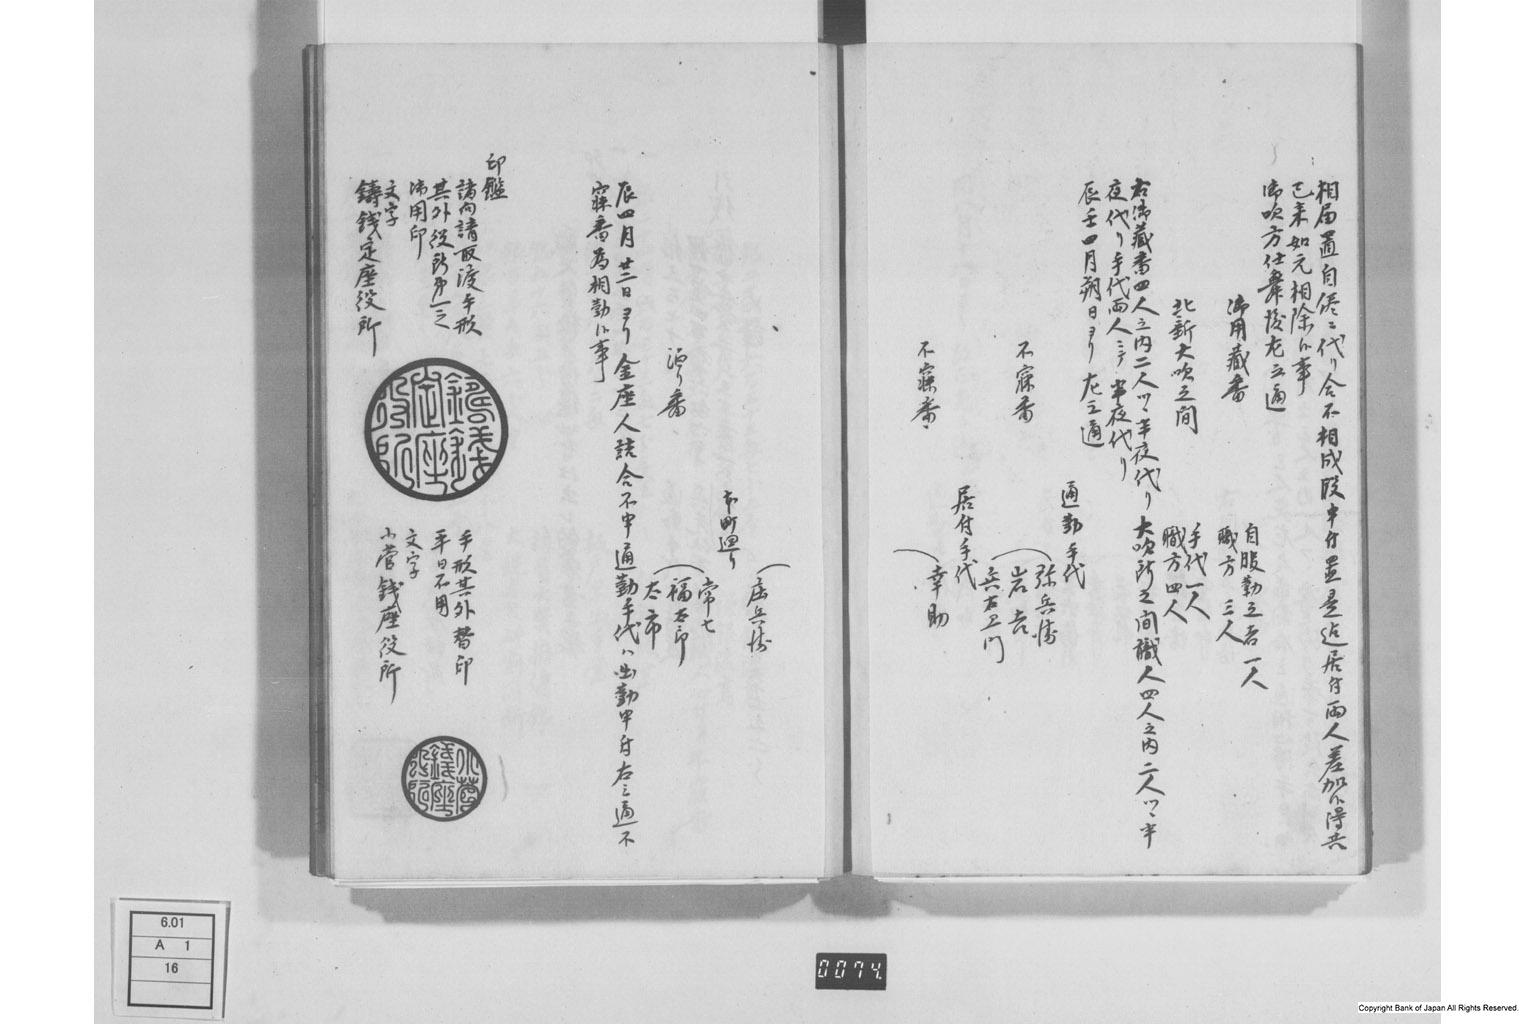 相届置自然代り合不相成段申付置是迄居付両人差加ヘ得共
已来如元相除候事
御吹方仕舞後左之通
御用蔵番
自服勤之者 一人
職方 三人
北新大吹之間
手代一人
職方四人
右御蔵番四人之内二人ツヽ半夜代り大吹所之間職人四人之内二人ツヽ半
夜代り手代両人ニテ半夜代り
辰壬四月朔日ヨリ左之通
通勤手代
不寐番
弥兵衛
岩吉
兵右衛門
居付手代
不寐番
幸助
庄兵衛
本町廻り
常七
泊り番
福太郎
太市
辰四月廿三日ヨリ金座人詰合不申通勤手代ハ出勤申付右之通不
寐番為相勤候事
印鑑
諸向請取渡手形
其外役所第一之
御用印
文字
鋳銭定座役所
鋳銭定座役所
手形其外替印
平日不用
文字
小菅銭座役所
小菅銭座役所
6.01
A 1
16
0074
Copyright Bank of Japan All Rights Reserved.